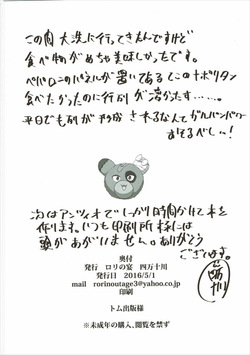 この間 大洗に行ってきたんですけど
食べ物がめちゃ美味しかったです。
ペパロニのパネルが置いてあるとこのナポリタン
食べたかったのに行列が凄かったす……。
平日でも列が形成されるなんてガルパンパワー
おそるべしぃ!
次はアンツィオでしっかり時間かけて本を
作ります。いつも印刷所様には
頭があがいません。ありがとう
ございます。
奥付
発行 ロリの宴 四万十川
発行日 2016/5/1
mail rorinoutage3@yahoo.co.jp
印刷
トム出版様
※未成年の購入、閲覧を禁ず